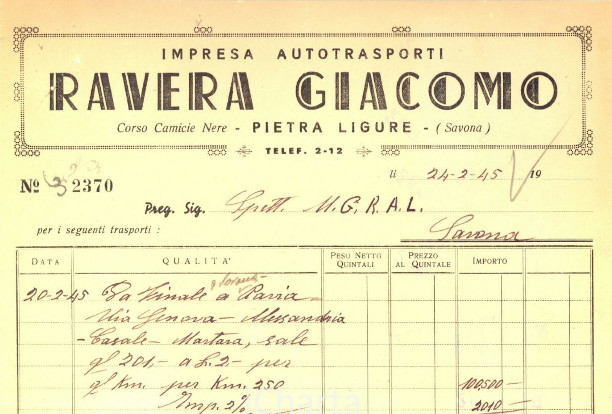 IMPRESA AUTOTRASPORTI
RAVERA GIACOMO
Corso Camicie Nere - PIETRA LIGURE - (Savona)
TELEF. 2-12
li 24-2-45 19
Nº 2370
Preg. Sig. Spett. M.G.R.A.L.
Savona
per i seguenti trasporti :
DATA QUALITA' PESO NETTO QUINTALI PREZZO AL QUINTALE IMPORTO
20-2-45 Da Finale a Pavia
Via Genova - Alessandria
- Casale - Mortara, sale
ql 201,- a L. 2- per
ql Km. per Km. 250 100.500 -
Imp. 2% 2010 -